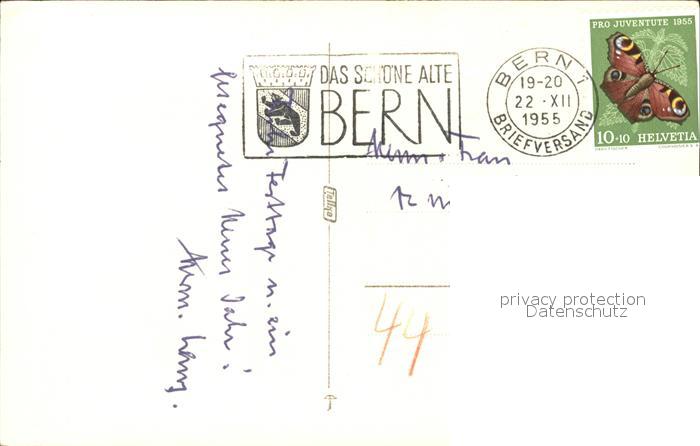 DAS SCHÖNE ALTE
BERN
BERN 1
19-20
22 · XII
1955
BRIEFVERSAND
PRO JUVENTUTE 1955
10+10 HELVETIA
Festtage u. ein
gesegnetes Neues Jahr!
Herrn + Frau
Tellko
44
privacy protection
Datenschutz